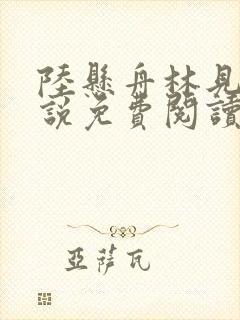 陸懸舟林見
說免費閱讀
亞薩瓦